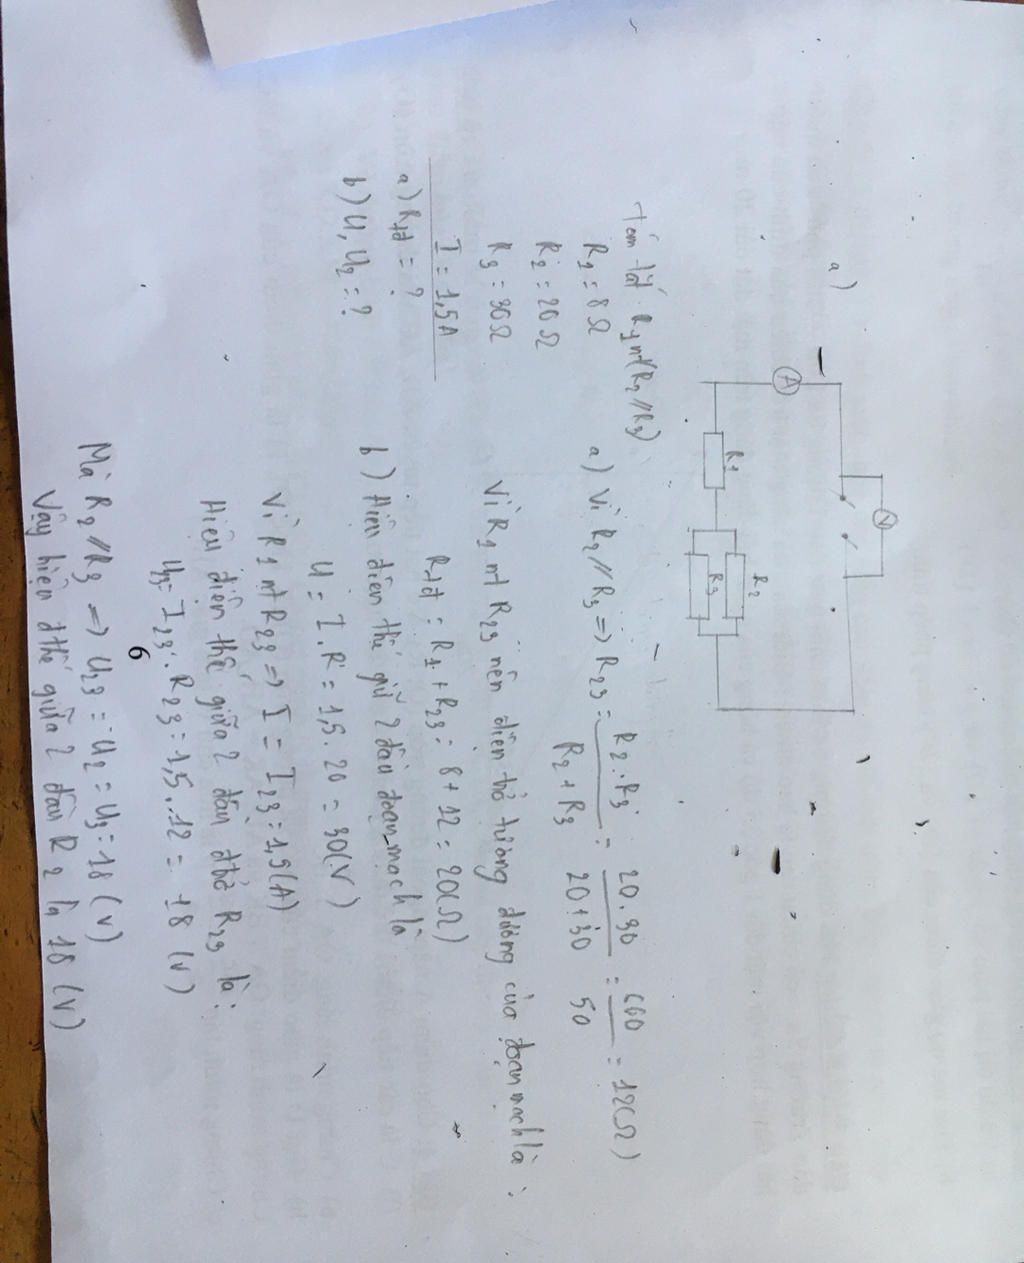 a)
A
V
R1
R2
R3
Tóm tắt R1 nt (R2 // R3)
R1 = 8 Ω
R2 = 20 Ω
R3 = 30 Ω
I = 1,5 A
a) Rtđ = ?
b) U, U2 = ?
a) Vì R2 // R3 => R23 = R2 . R3 / R2 + R3 = 20 . 30 / 20 + 30 = 600 / 50 = 12(Ω)
Vì R1 nt R23 nên điện trở tương đương của đoạn mạch là :
Rtđ = R1 + R23 = 8 + 12 = 20(Ω)
b) Hiệu điện thế giữ 2 đầu đoạn mạch là
U = I . R = 1,5 . 20 = 30(V)
Vì R1 nt R23 => I = I23 = 1,5(A)
Hiệu điện thế giữa 2 đầu đtrở R23 là :
U23 = I23 . R23 = 1,5 . 12 = 18 (V)
Mà R2 // R3 => U23 = U2 = U3 = 18 (V)
Vậy hiệu đthế giữa 2 đầu R2 là 18 (V)
6